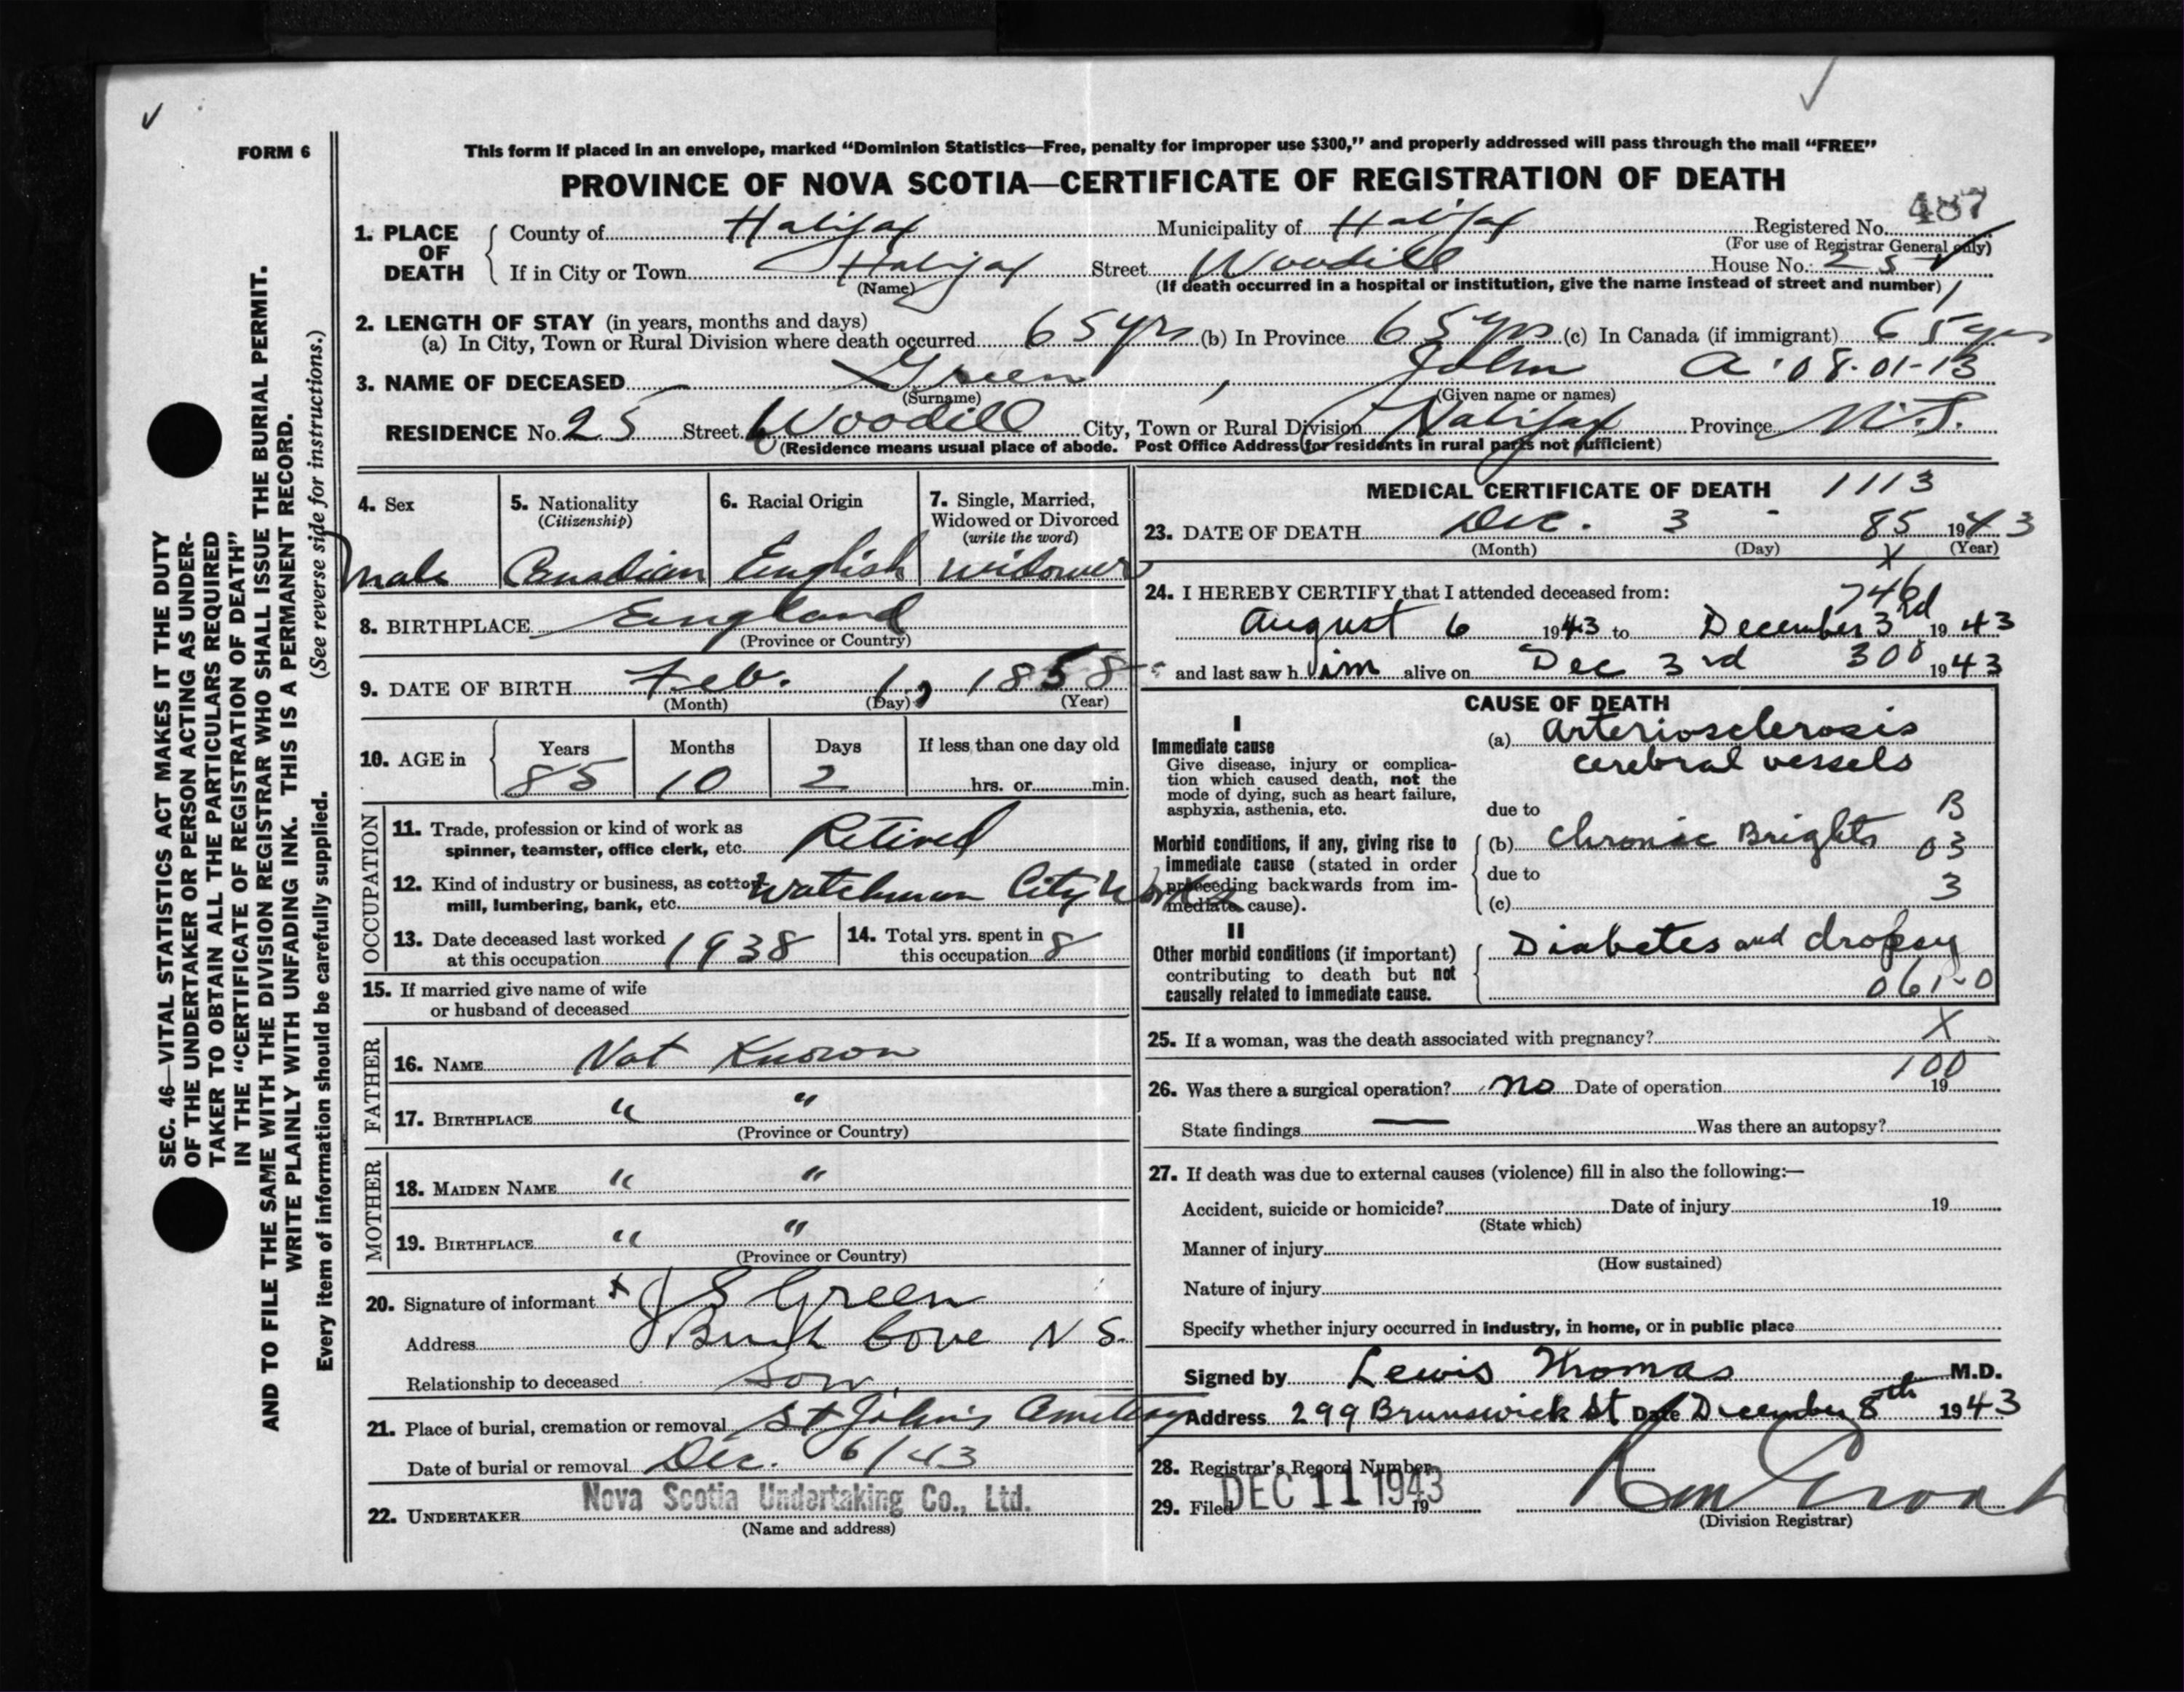 FORM 6
This form if placed in an envelope, marked “Dominion Statistics—Free, penalty for improper use $300,” and properly addressed will pass through the mail “FREE”
PROVINCE OF NOVA SCOTIA—CERTIFICATE OF REGISTRATION OF DEATH
487
1. PLACE OF DEATH County of Halifax Municipality of Halifax Registered No.
(For use of Registrar General only)
If in City or Town Halifax Street Woodill House No. 25
(Name) (If death occurred in a hospital or institution, give the name instead of street and number)
2. LENGTH OF STAY (in years, months and days)
(a) In City, Town or Rural Division where death occurred 65 yrs (b) In Province 65 yrs (c) In Canada (if immigrant) 65 yrs
3. NAME OF DECEASED Green, John A. 08-01-13
(Surname) (Given name or names)
RESIDENCE No. 25 Street Woodill City, Town or Rural Division Halifax Province N.S.
(Residence means usual place of abode. Post Office Address for residents in rural parts not sufficient)
4. Sex 5. Nationality 6. Racial Origin 7. Single, Married,
(Citizenship) Widowed or Divorced
(write the word)
Male Canadian English widower
8. BIRTHPLACE England
(Province or Country)
9. DATE OF BIRTH Feb. 1, 1858
(Month) (Day) (Year)
10. AGE in Years Months Days If less than one day old
85 10 2 hrs. or min.
OCCUPATION
11. Trade, profession or kind of work as
spinner, teamster, office clerk, etc. Retired
12. Kind of industry or business, as cotton
mill, lumbering, bank, etc. Watchman City Works
13. Date deceased last worked
at this occupation 1938
14. Total yrs. spent in
this occupation 8
15. If married give name of wife
or husband of deceased
FATHER
16. NAME Not Known
17. BIRTHPLACE " "
(Province or Country)
MOTHER
18. MAIDEN NAME " "
19. BIRTHPLACE " "
(Province or Country)
20. Signature of informant x J S Green
Address Cove N S.
Relationship to deceased Son.
21. Place of burial, cremation or removal St John's Cemetery
Date of burial or removal Dec. 6/43
22. UNDERTAKER Nova Scotia Undertaking Co., Ltd.
(Name and address)
MEDICAL CERTIFICATE OF DEATH 1113
23. DATE OF DEATH Dec. 3 - 85 1943
(Month) (Day) (Year)
X
24. I HEREBY CERTIFY that I attended deceased from: 746
August 6 1943 to December 3rd 1943
and last saw him alive on Dec 3rd 300 1943
CAUSE OF DEATH
I
Immediate cause
Give disease, injury or complica-
tion which caused death, not the
mode of dying, such as heart failure,
asphyxia, asthenia, etc.
(a) Arteriosclerosis
cerebral vessels
due to B
Morbid conditions, if any, giving rise to
immediate cause (stated in order
proceeding backwards from im-
mediate cause).
(b) Chronic Brights 03
due to
(c) 3
II
Other morbid conditions (if important)
contributing to death but not
causally related to immediate cause.
Diabetes and dropsy
061-0
25. If a woman, was the death associated with pregnancy? X
100
26. Was there a surgical operation? no Date of operation 19
State findings — Was there an autopsy?
27. If death was due to external causes (violence) fill in also the following:—
Accident, suicide or homicide? Date of injury 19
(State which)
Manner of injury
(How sustained)
Nature of injury
Specify whether injury occurred in industry, in home, or in public place
Signed by Lewis Thomas M.D.
Address 299 Brunswick St Date December 8th 1943
28. Registrar's Record Number
29. Filed DEC 11 1943 19
(Division Registrar)
SEC. 46—VITAL STATISTICS ACT MAKES IT THE DUTY
OF THE UNDERTAKER OR PERSON ACTING AS UNDER-
TAKER TO OBTAIN ALL THE PARTICULARS REQUIRED
IN THE “CERTIFICATE OF REGISTRATION OF DEATH”
AND TO FILE THE SAME WITH THE DIVISION REGISTRAR WHO SHALL ISSUE THE BURIAL PERMIT.
WRITE PLAINLY WITH UNFADING INK. THIS IS A PERMANENT RECORD.
Every item of information should be carefully supplied. (See reverse side for instructions.)